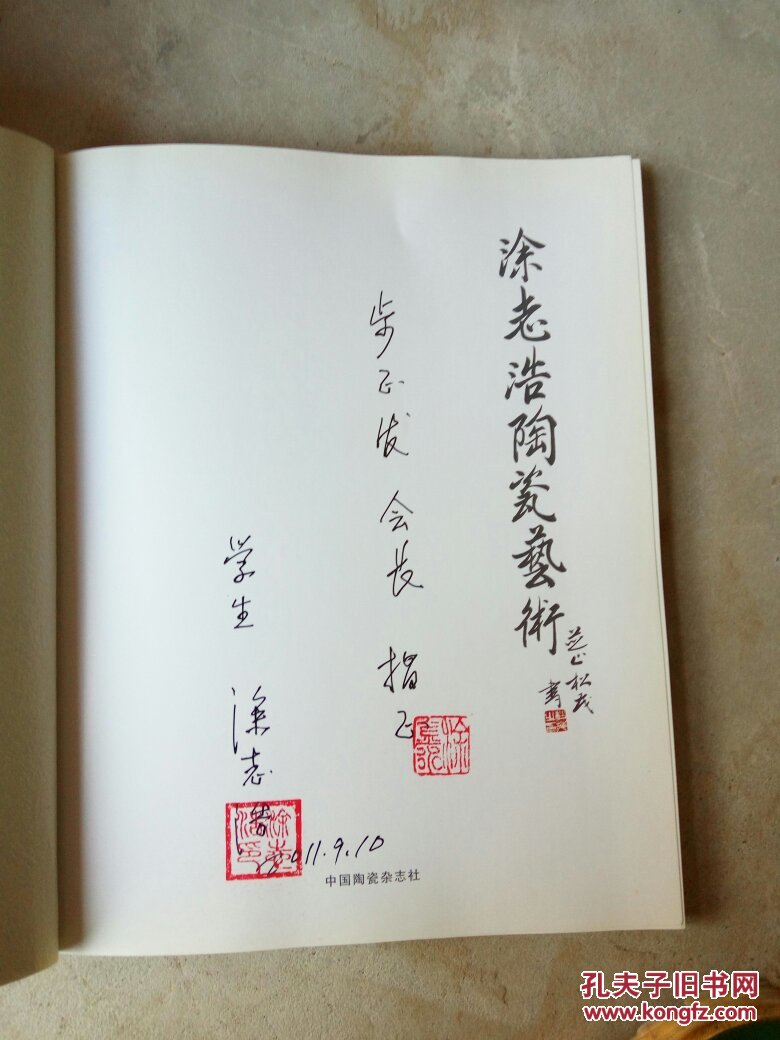 涂志浩陶瓷藝術
松茂
書
正发 会长 指正
学生 涂志浩
2011.9.10
中国陶瓷杂志社
孔夫子旧书网
www.kongfz.com